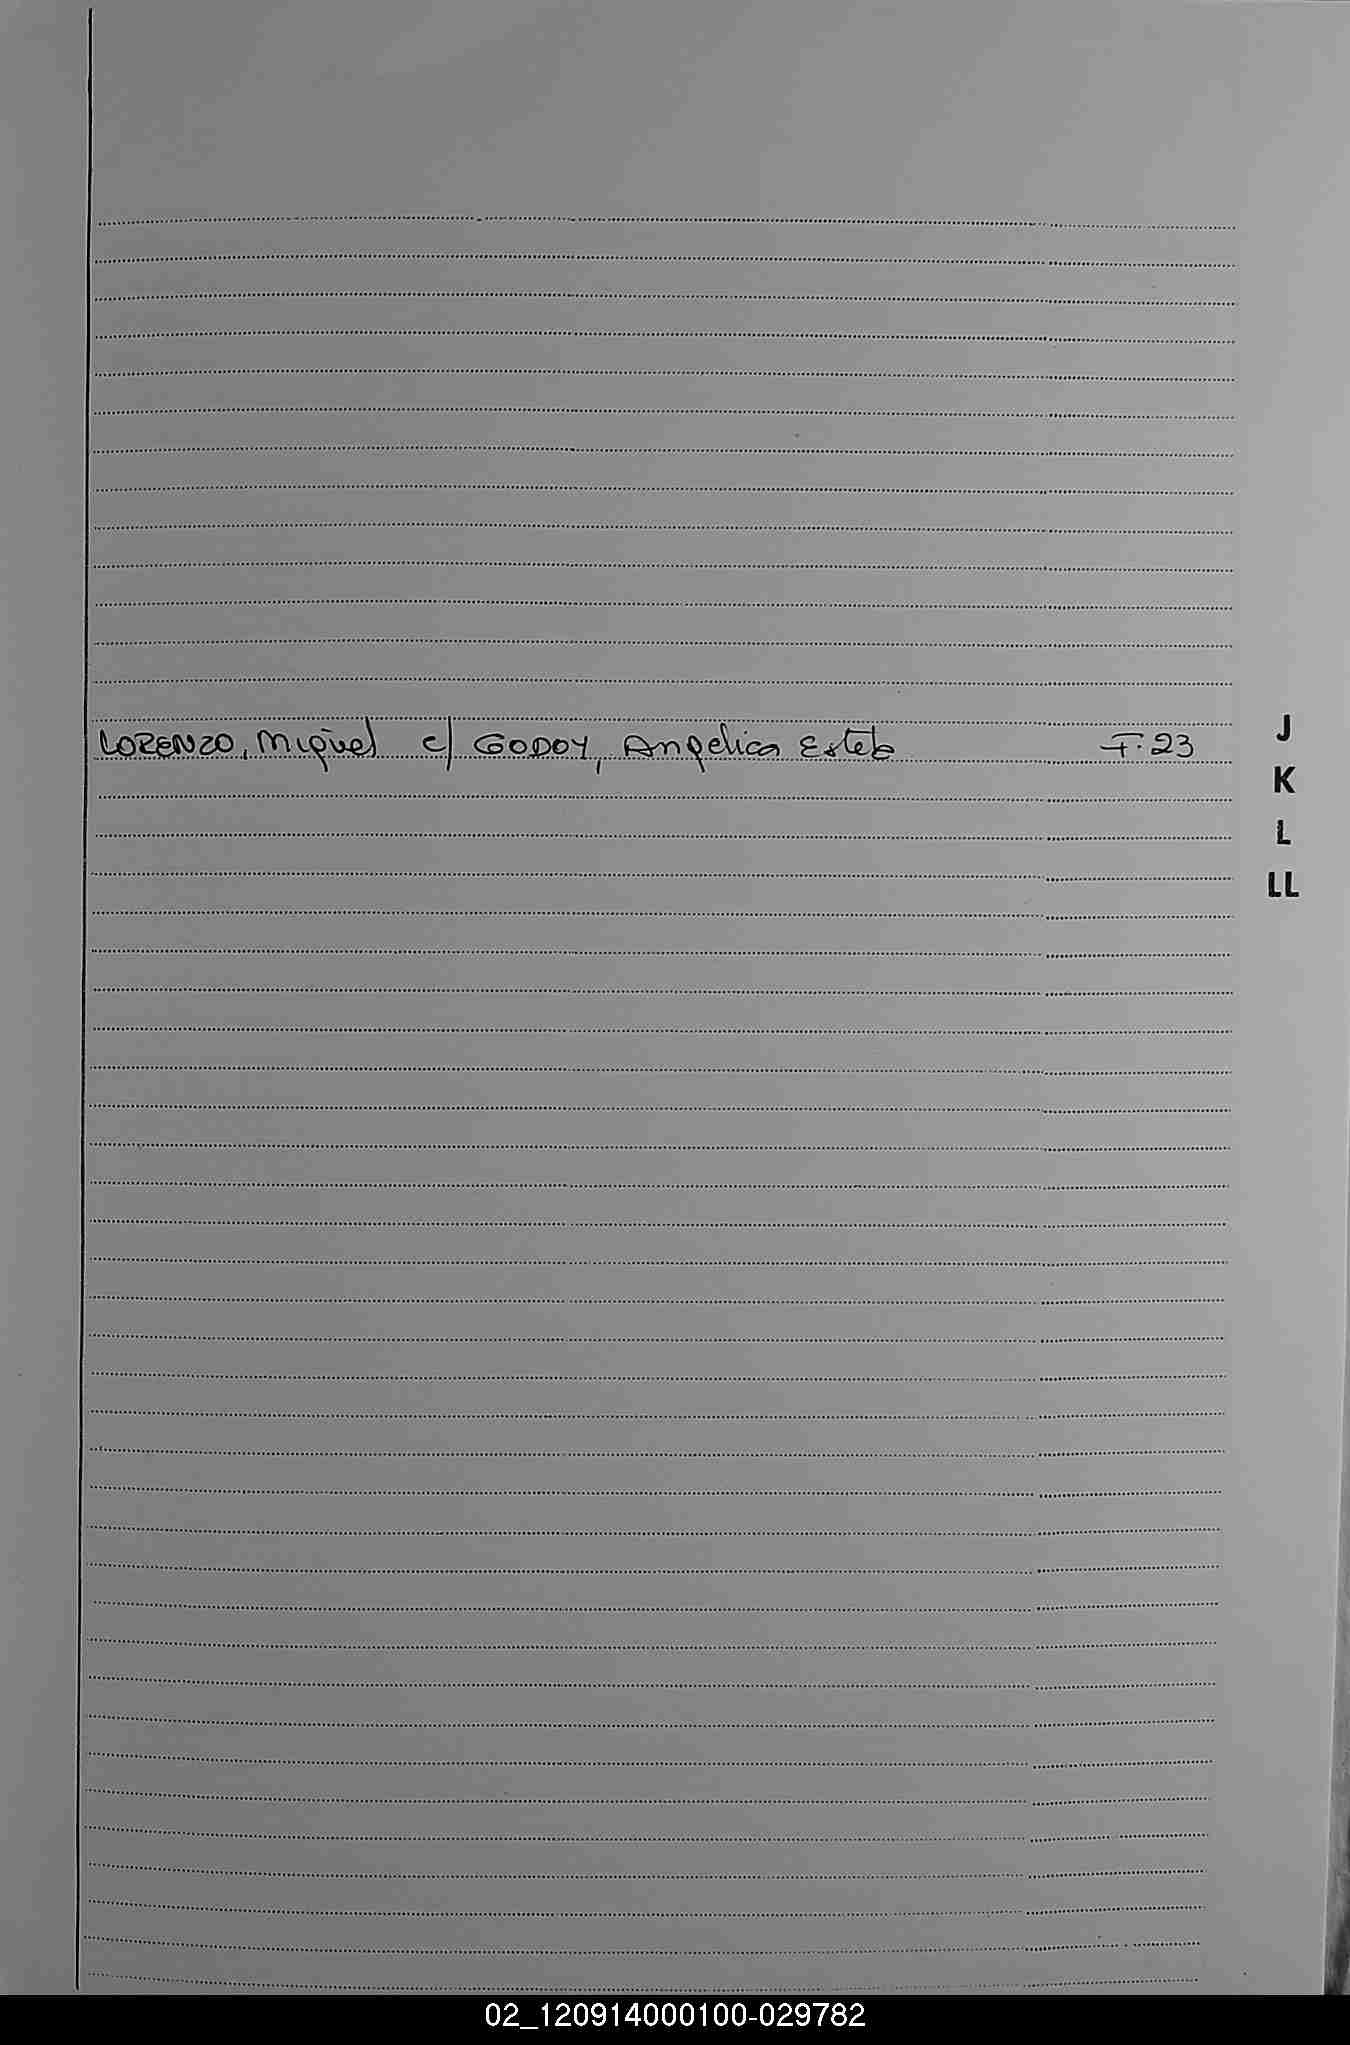 LORENZO, Miguel c/ GODOY, Angelica Estela F. 23
J
K
L
LL
02_120914000100-029782